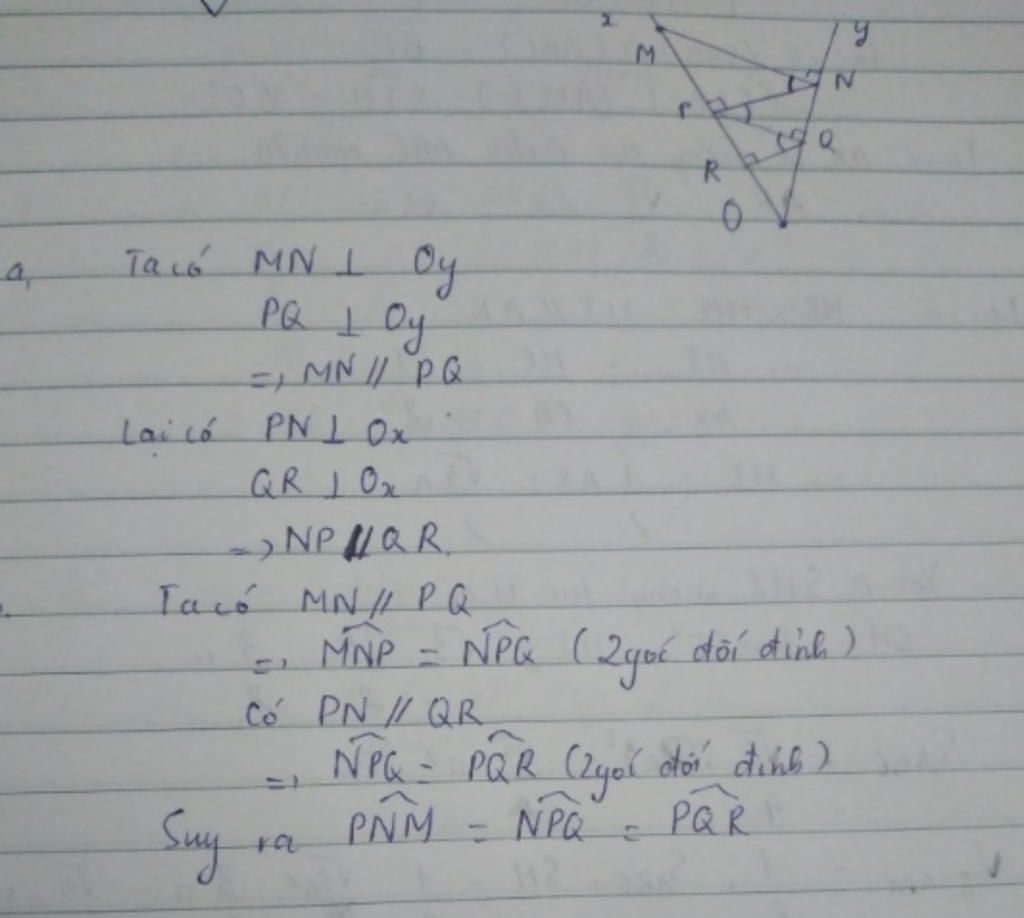 x
y
M
N
P
Q
R
O
a, Ta có MN ⊥ Oy
PQ ⊥ Oy
=> MN // PQ
Lại có PN ⊥ Ox
QR ⊥ Ox
=> NP // QR.
Ta có MN // PQ
=> \widehat{MNP} = \widehat{NPQ} (2 góc đối đỉnh)
Có PN // QR
=> \widehat{NPQ} = \widehat{PQR} (2 góc đối đỉnh)
Suy ra \widehat{PNM} = \widehat{NPQ} = \widehat{PQR}